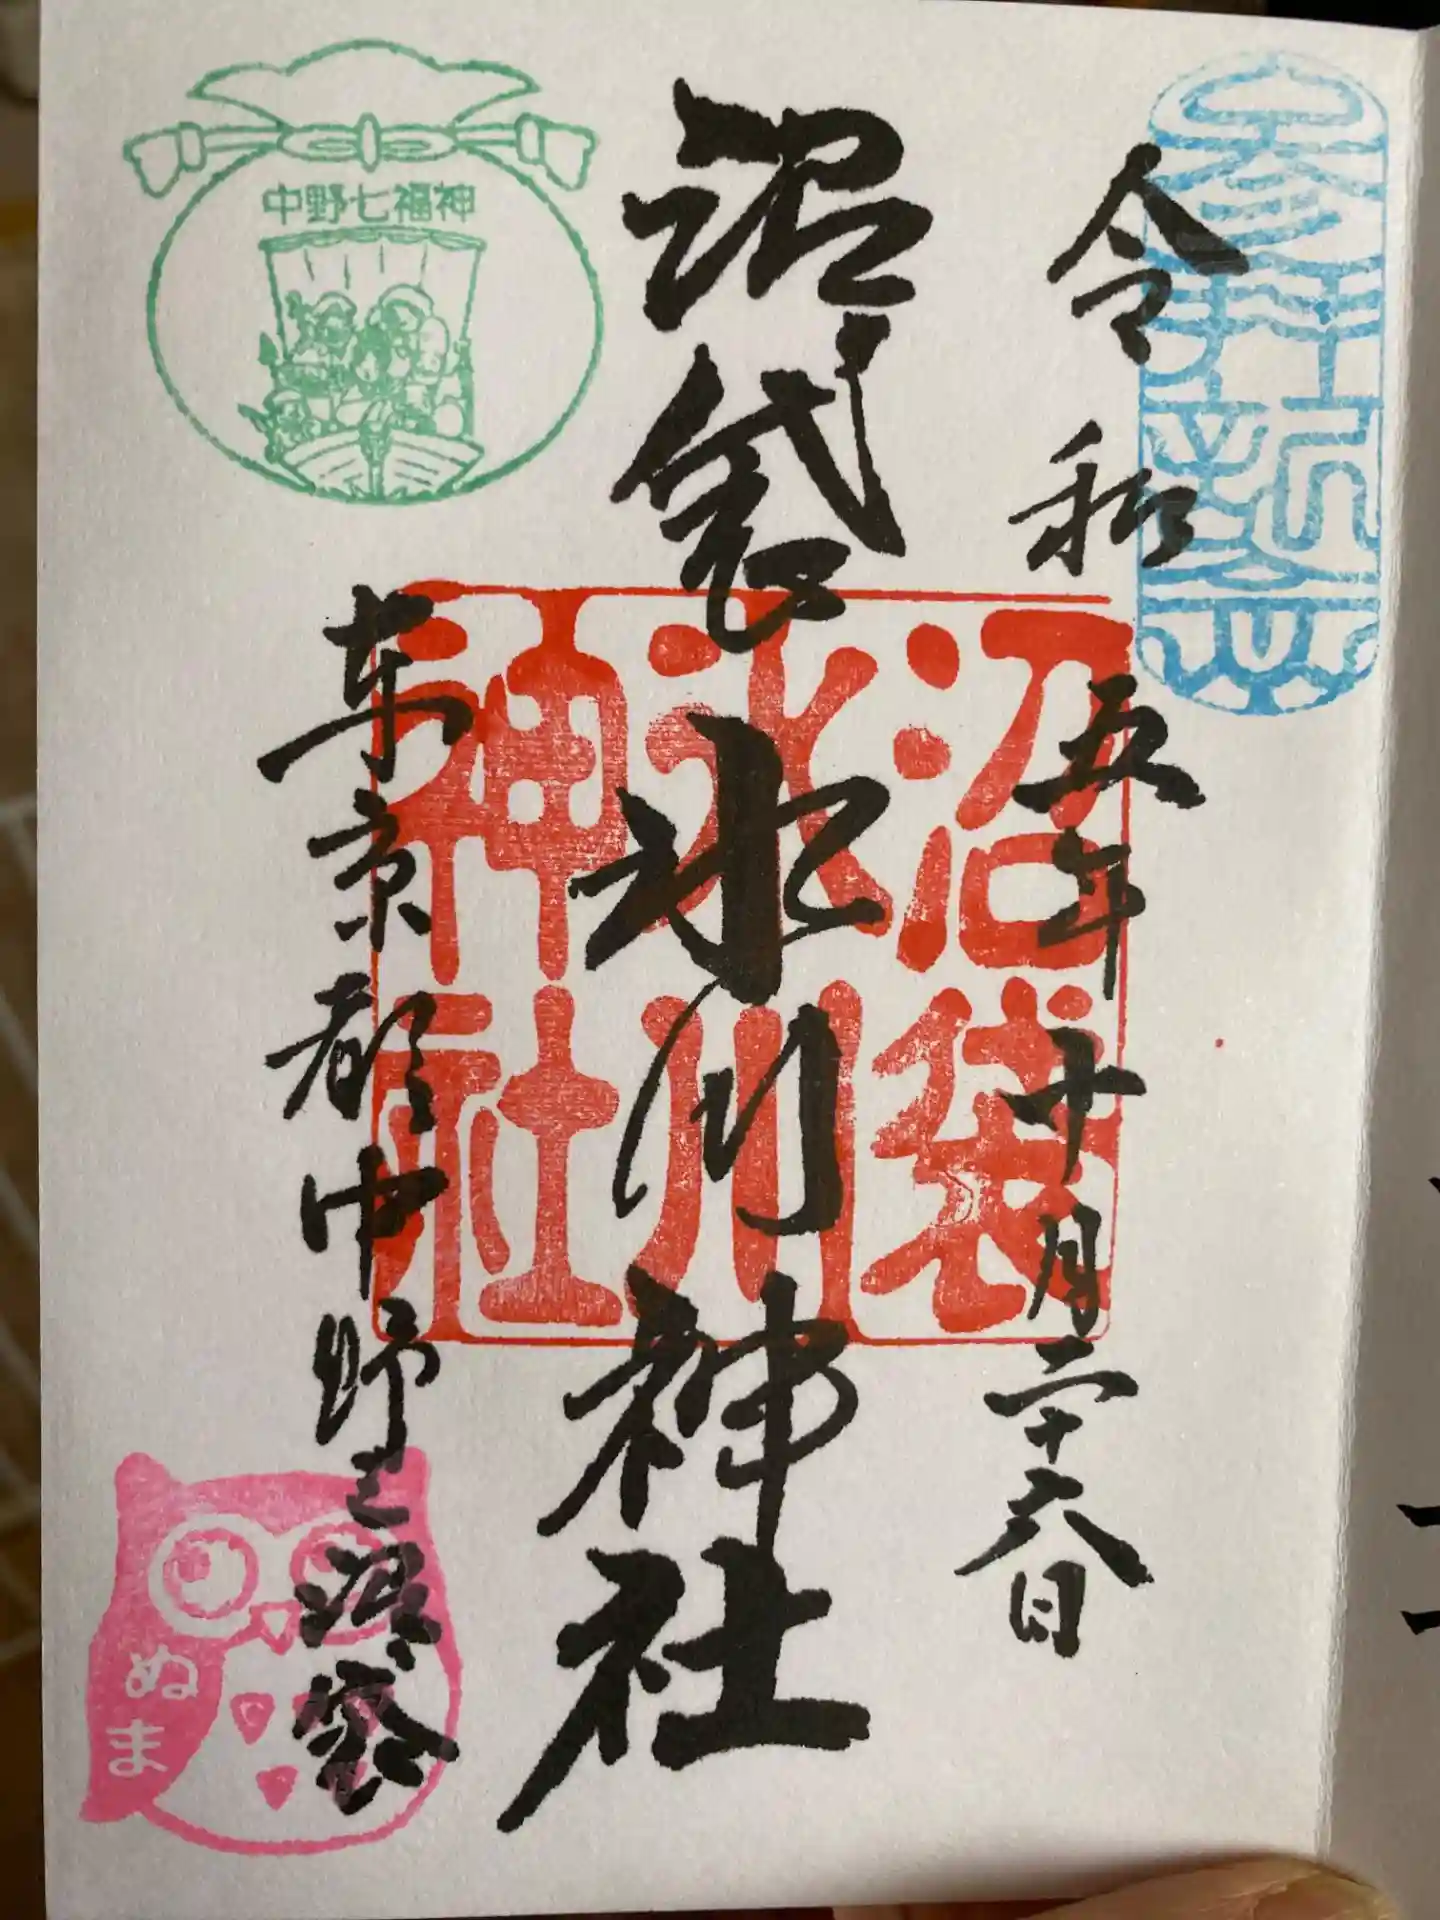 参拝祈念
令和五年十月二十六日
沼袋氷川神社
沼袋
氷川
神社
中野七福神
東京都中野之沼袋
ぬま